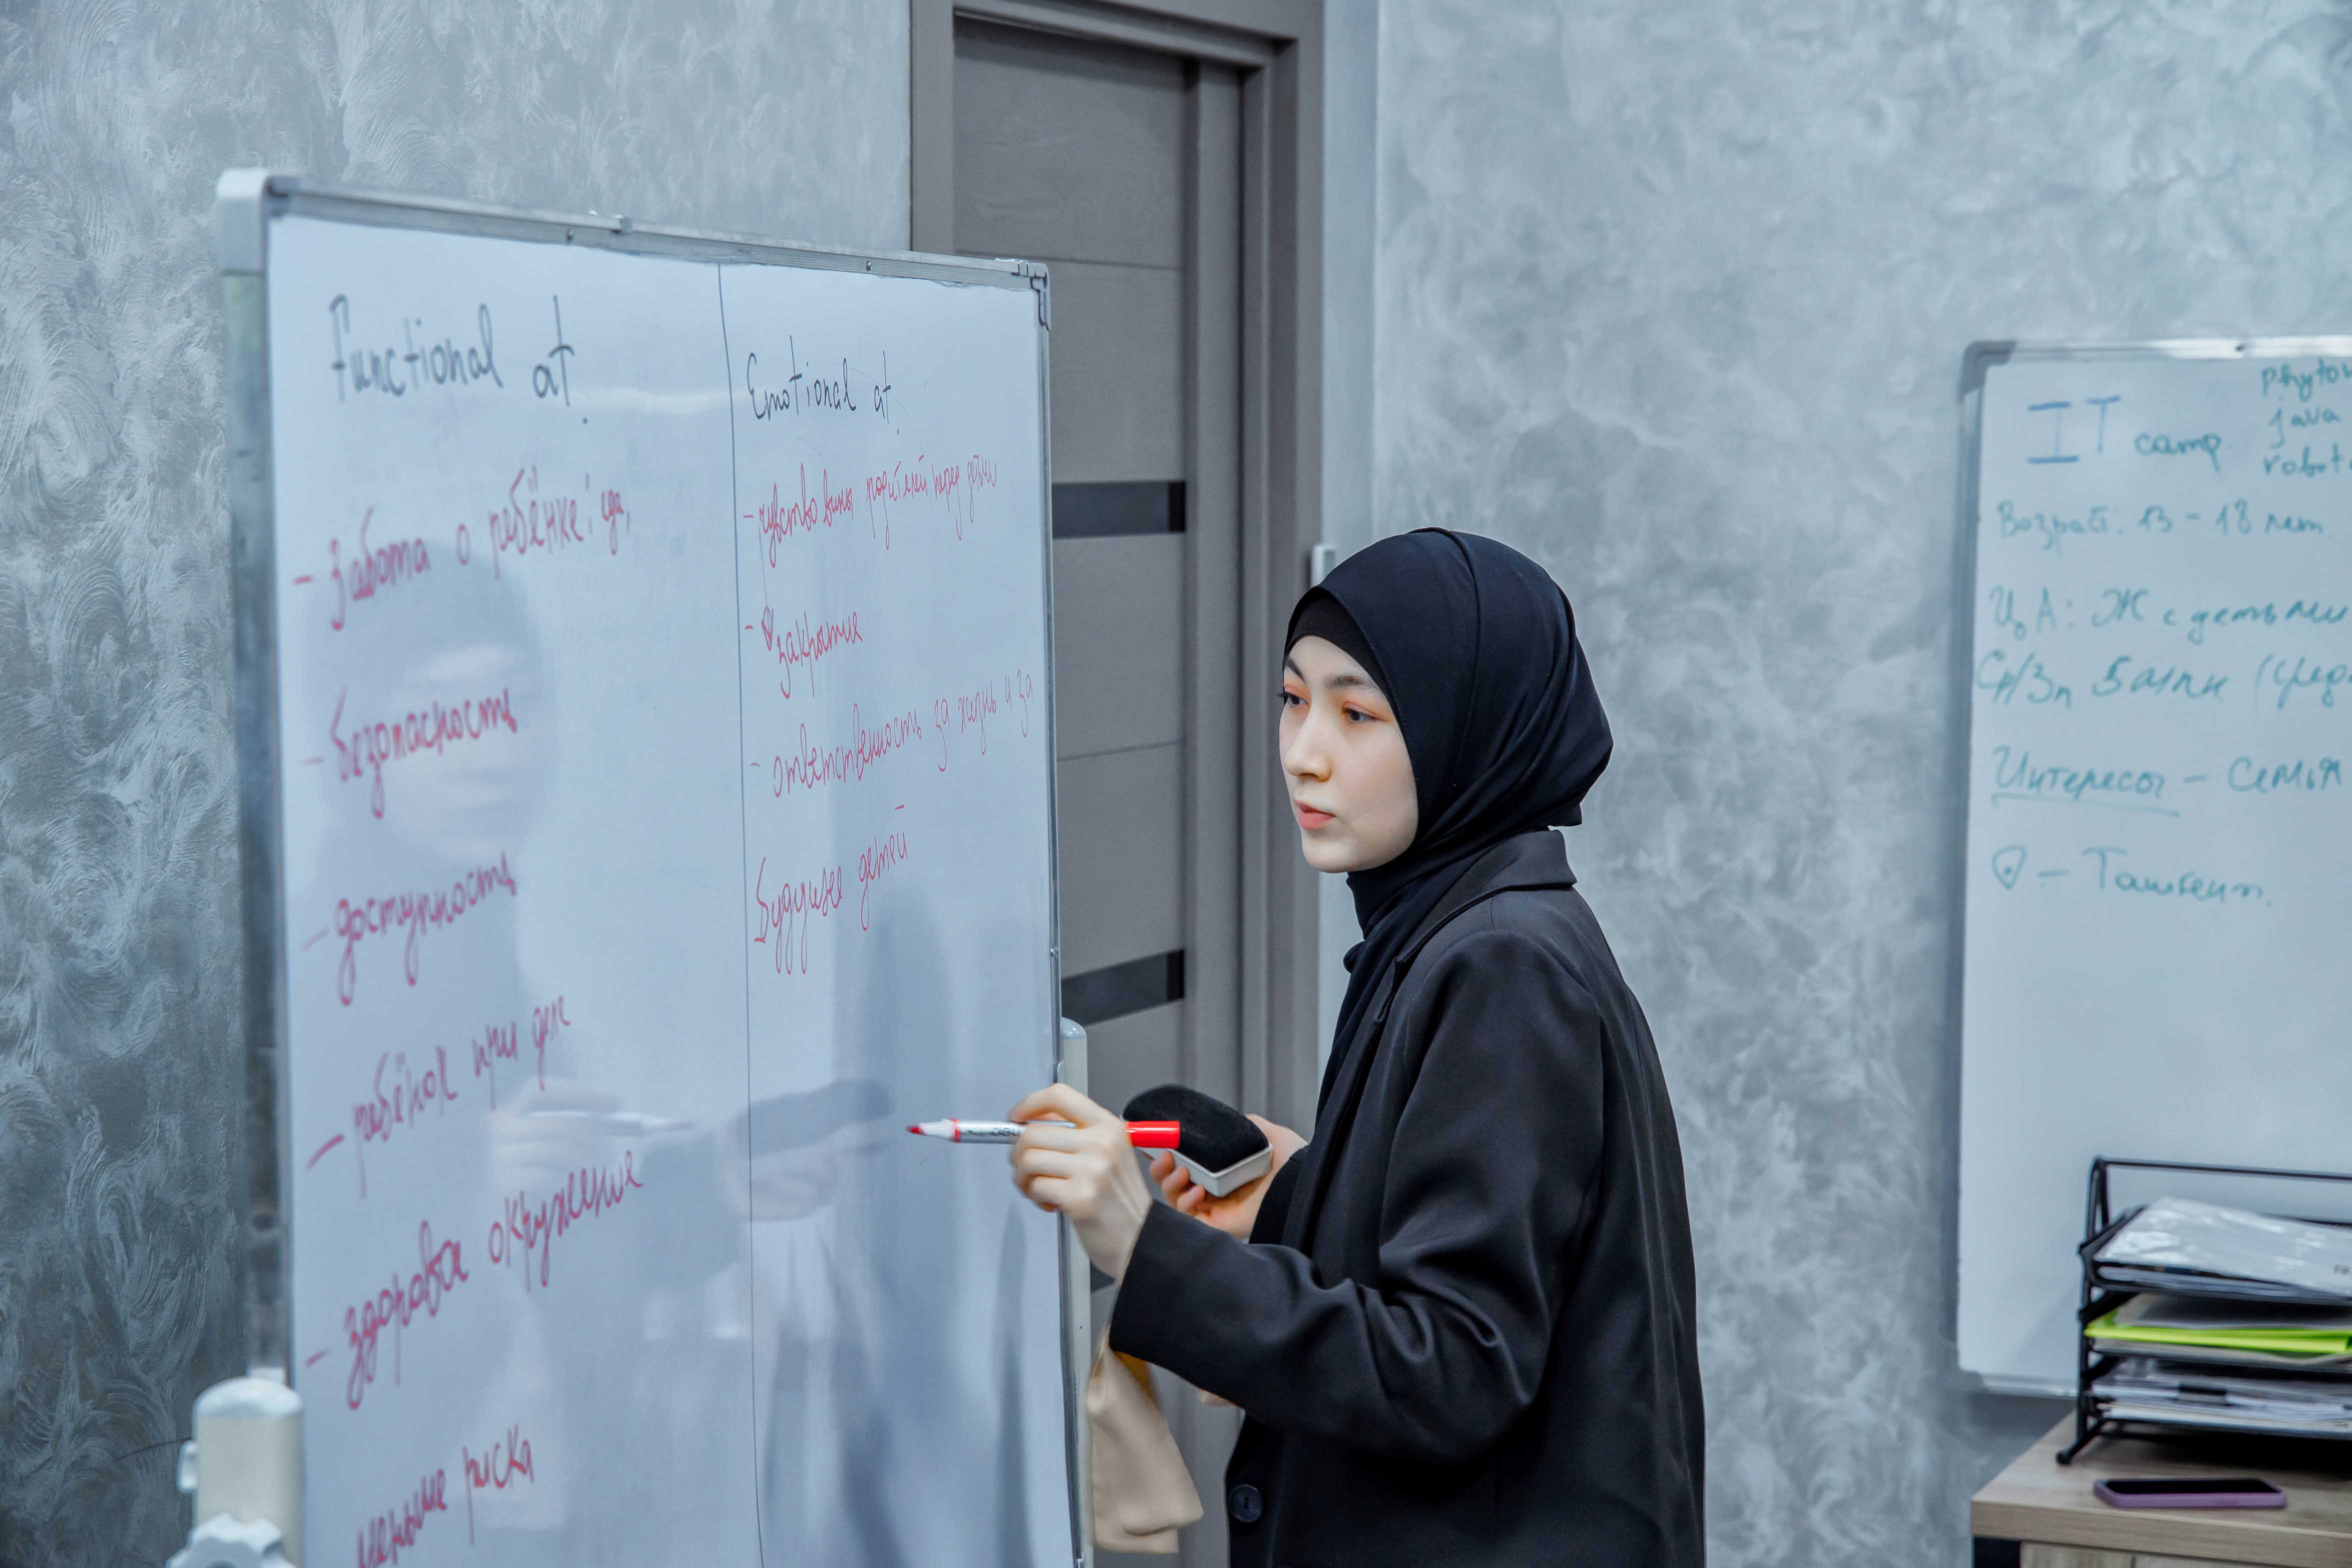 Functional at.
- Забота о ребёнке: еда,
- безопасность
- доступность
- ребёнок при деле
- здоровое окружение
меньше риска
Emotional at.
- чувство вины родителей перед детьми
- закрытие
- ответственность за жизнь и за
будущее детей
deli
IT camp.
java
Возраст: 13-18 лет
ЦА: Ж с детьми
Интересы - семья
- Ташкент.